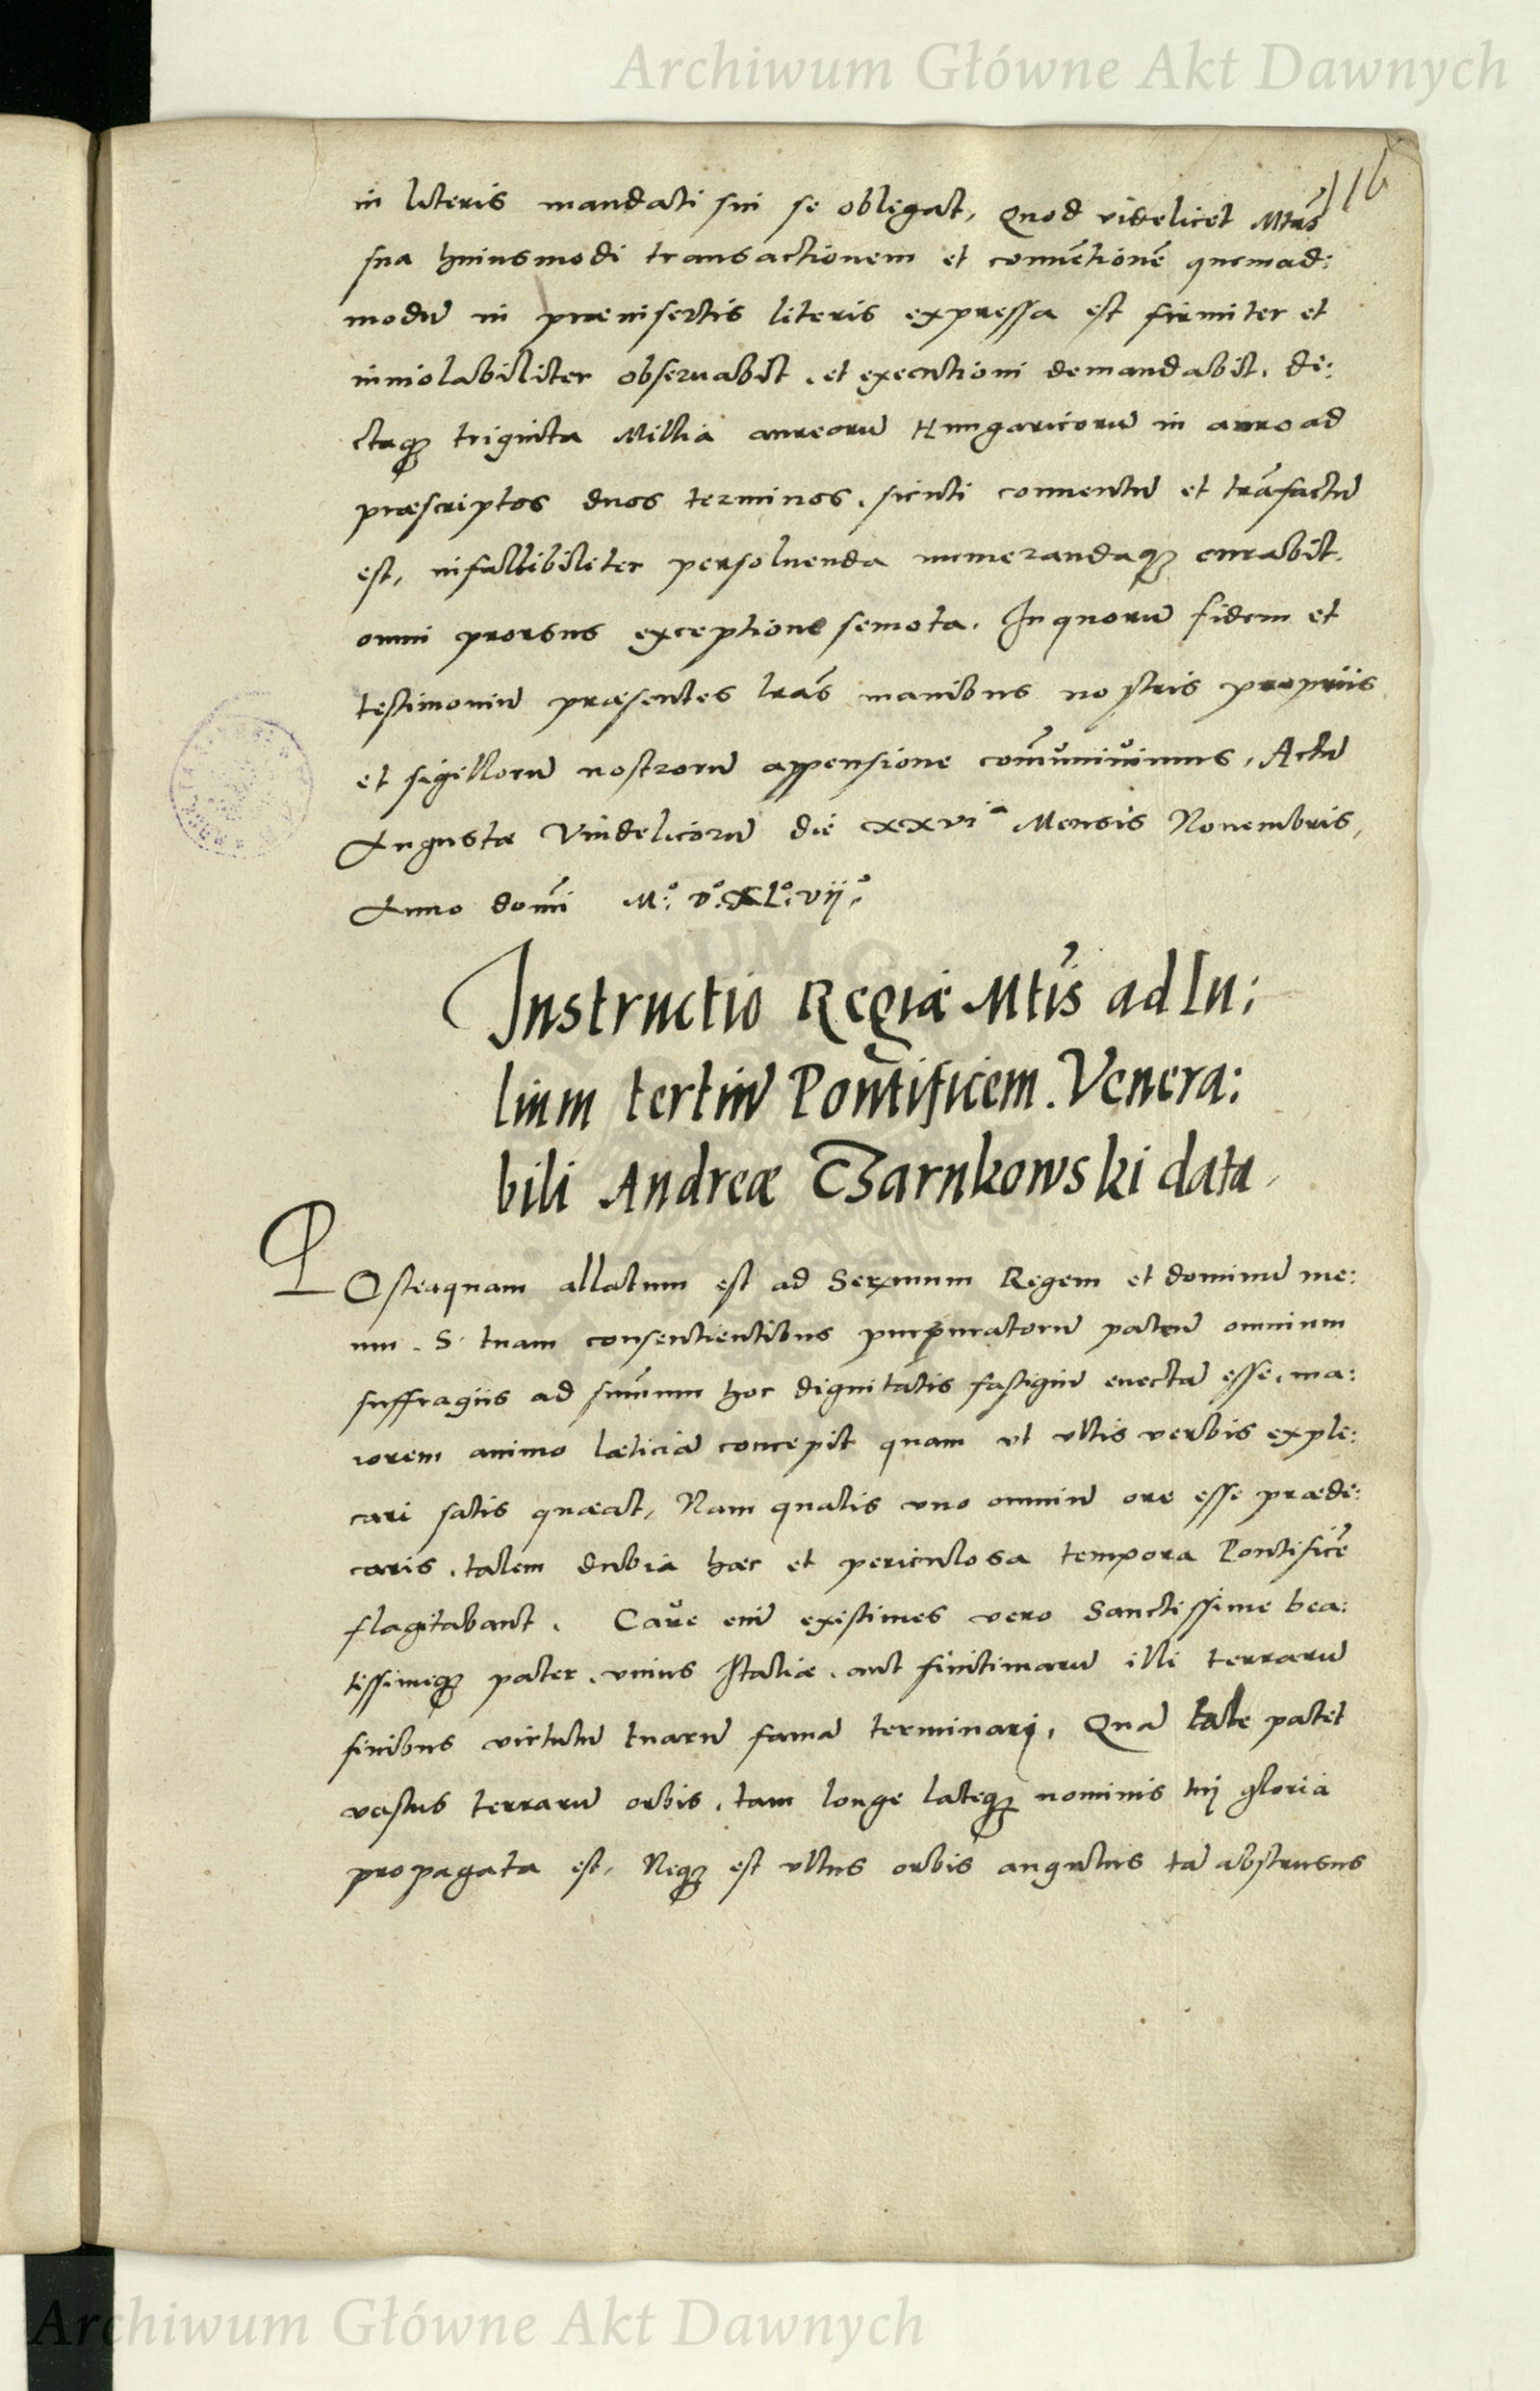 Archiwum Główne Akt Dawnych
116
in literis mandati sui se obligat, Quod videlicet Mtas̃
sua huiusmodi transactionem et conuẽtionẽ quemad:
modũ in præinsertis literis expressa est firmiter et
inuiolabiliter obseruabit. et executioni demandabit. di:
ctaqꝫ triginta Millia aureorũ Hungaricorũ in auro ad
præscriptos duos terminos, sicuti conuentũ et trãsactũ
est, infallibiliter persoluenda numerandaqꝫ curabit.
omni prorsus exceptione semota. In quorũ fidem et
testimoniũ præsentes lrãs manibus nostris propriis
et sigillorũ nostrorũ appensione cõmuniuimus, Actũ
Augustæ Vindelicorũ die xxvi ͣ Mensis Nouembris,
Anno domĩ M:º D:º XL:º vii:º
Instructio Regiæ Mtis̃ ad Iu:
lium tertiũ Pontificem. Venera:
bili Andreæ Czarnkowski data
POsteaquam allatum est ad Serxmum Regem et dominũ me:
um. S. tuam consentientibus purpuratorũ patrũ omnium
suffragiis ad sum̃um hoc dignitatis fastigiũ euectã esse, ma:
iorem animo læticiã concepit quam vt vllis verbis expli:
cari satis quæat, Nam qualis vno omniũ ore esse prædi:
caris, talem dubia hæc et periculosa tempora Pontificẽ
flagitabant. Caue enĩ existimes vero Sanctissime bea:
tissimeqꝫ pater, vnius Italiæ, aut finitimarũ illi terrarũ
finibus virtutũ tuarũ famã terminari, Quã late patet
vastus terrarũ orbis, tam longe lateqꝫ nominis tuj gloria
propagata est, Neqꝫ est vllus orbis angulus tã abstrusus
Archiwum Główne Akt Dawnych